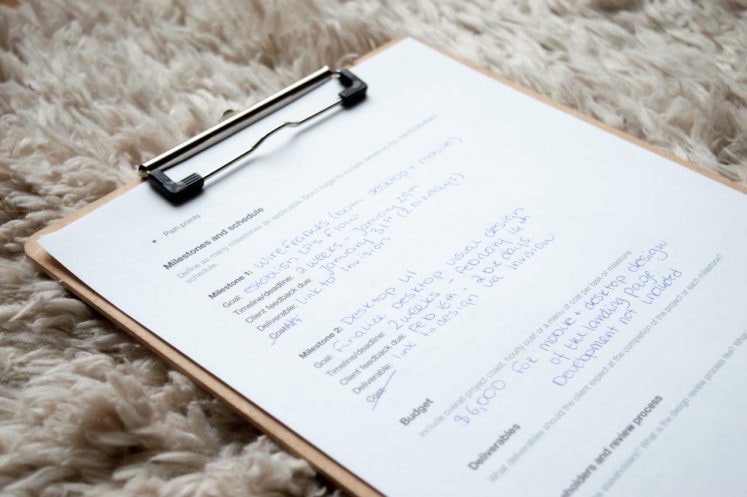 • Pain points
Milestones and schedule
Define as many milestones as applicable. Don't forget to include details on the client's feedback
schedule.
Milestone 1: Wireframes (both desktop + mobile)
Goal: establish UX flow
Timeline/deadline: 2 weeks - January 29th
Client feedback due: January 31st (2 biz days)
Deliverable: link to Invision
Cost:
Milestone 2: Desktop UI
Goal: Finalize desktop visual design
Timeline/deadline: 2 weeks - February 14th
Client feedback due: Feb 16th - 2 biz days
Deliverable: link to design via Invision
Cost:
Budget
Include overall project cost, hourly cost or a menu of cost per task or milestone.
$6,000 for mobile + desktop design
of the landing page
Development not included
Deliverables
What deliverables should the client expect at the completion of the project or each milestone?
holders and review process
stakeholders? What is the design review process like?